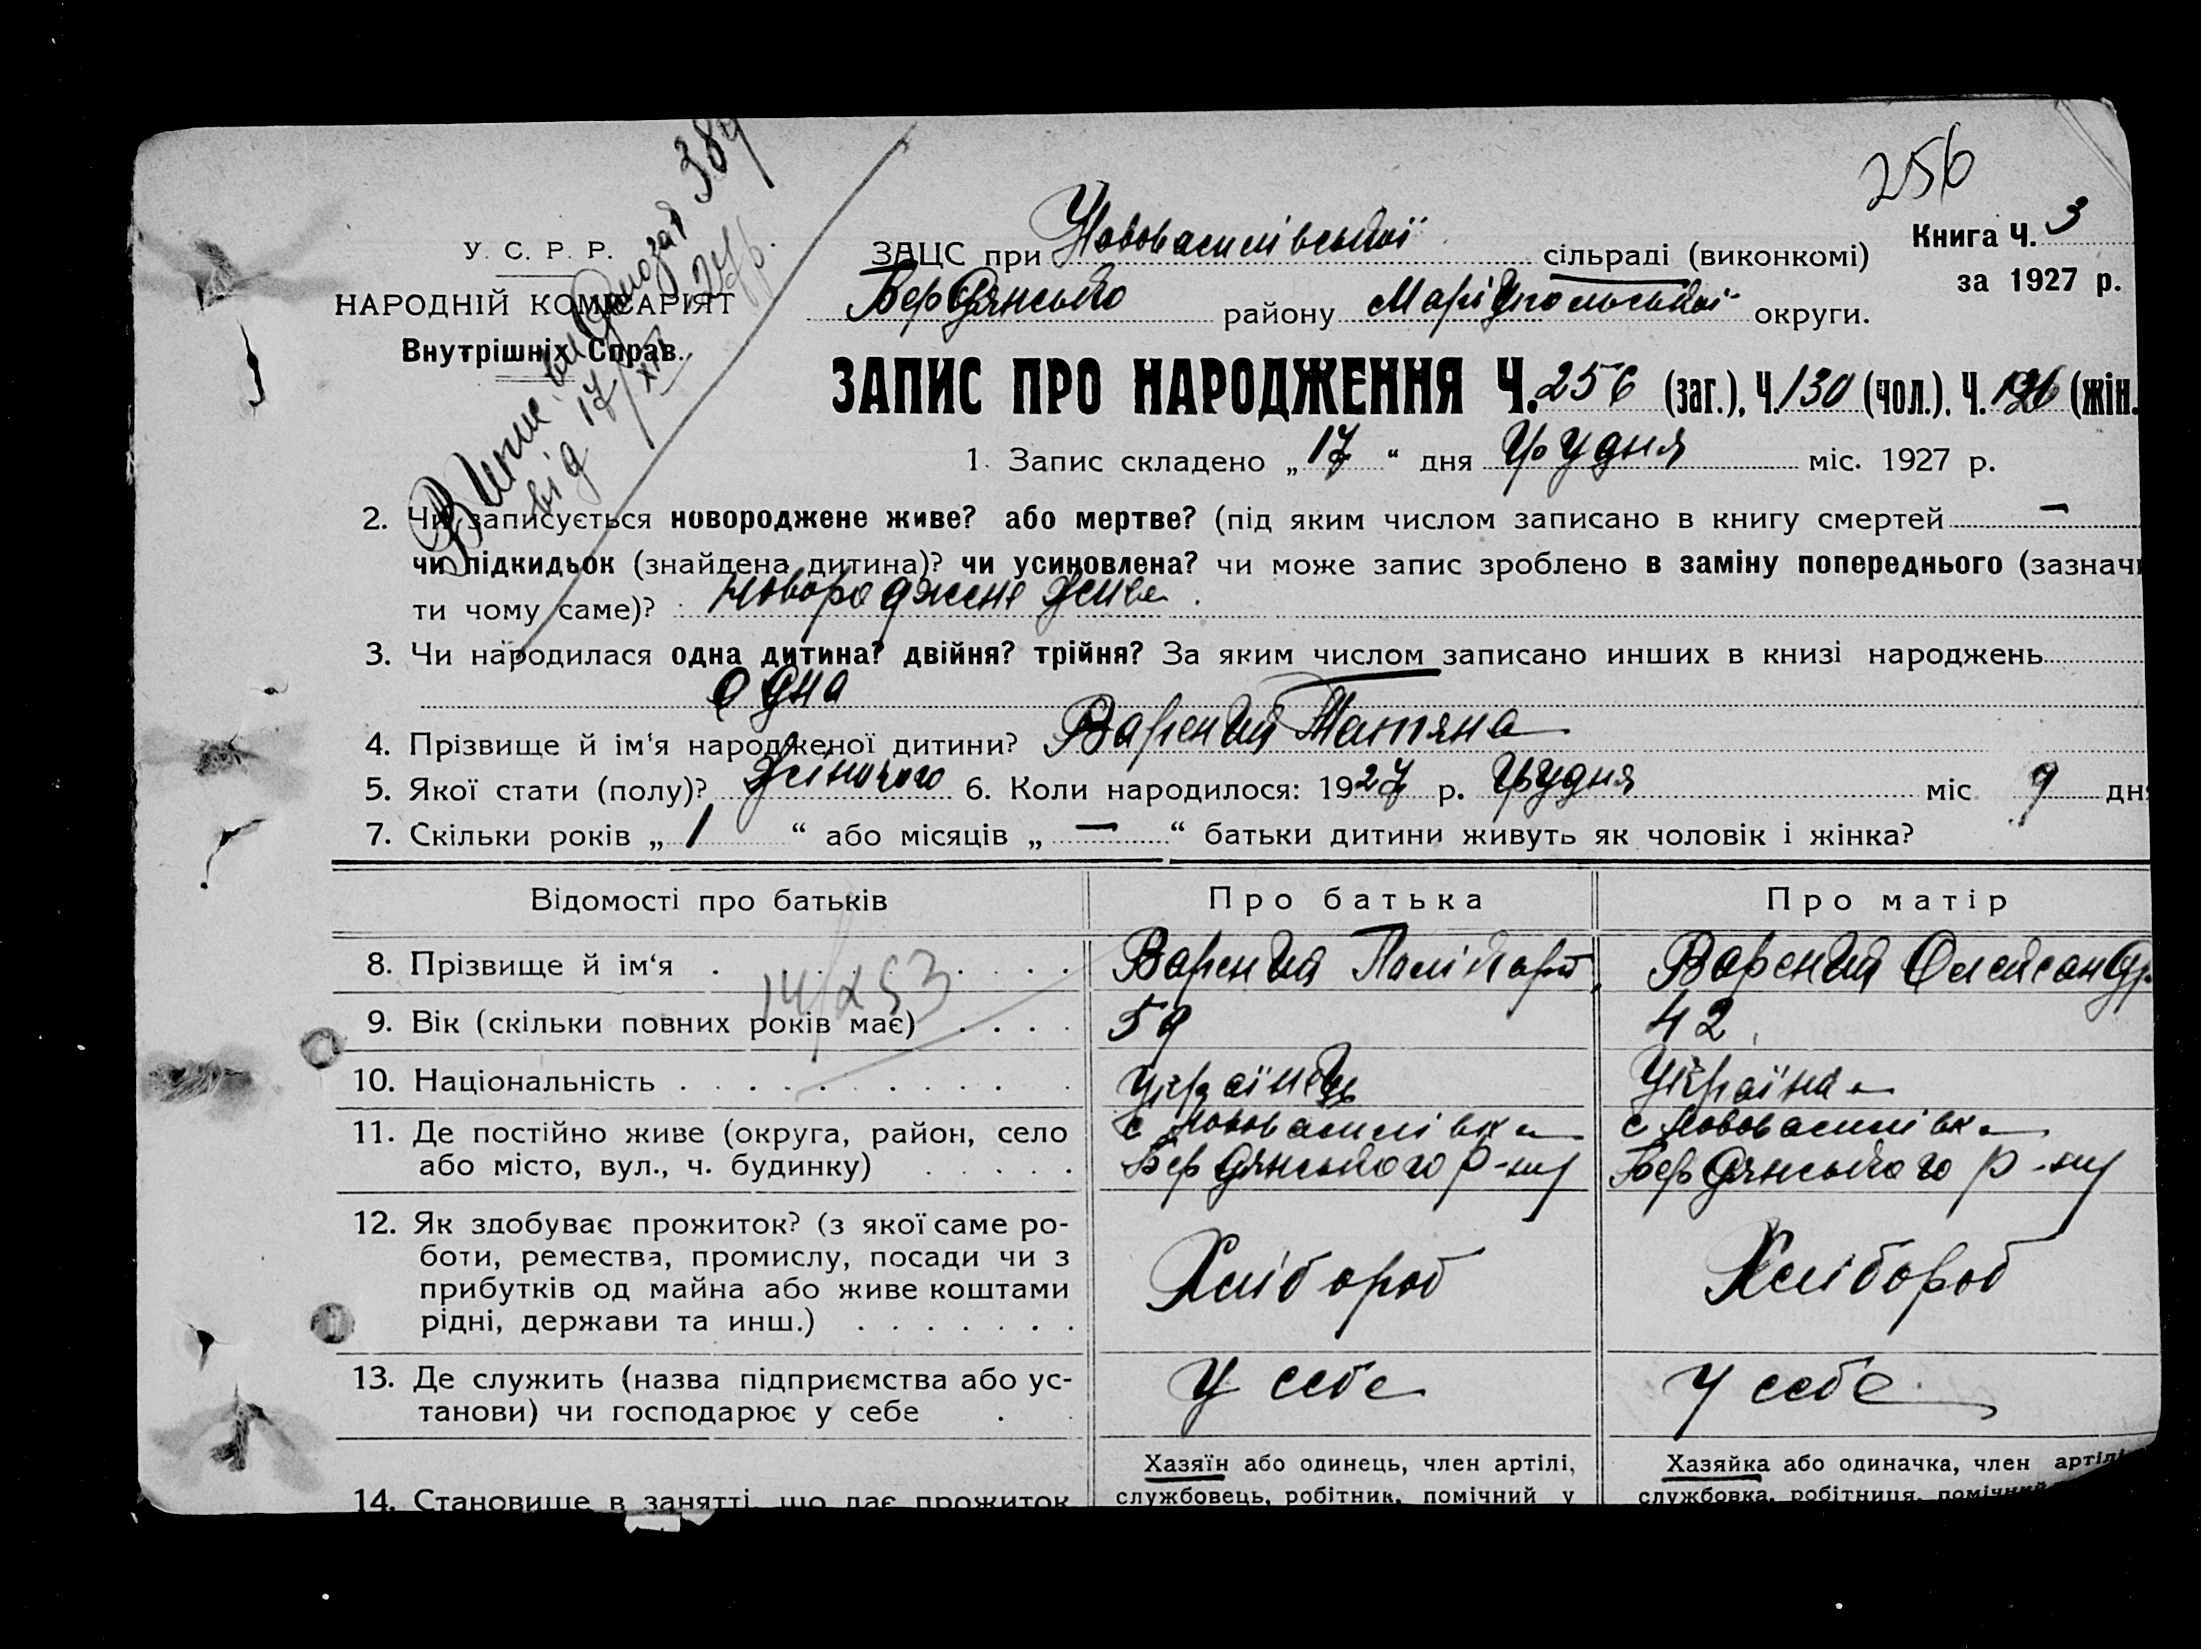 256
Книга Ч. 3
за 1927 р.
У. С. Р. Р.
НАРОДНІЙ КОМІСАРІЯТ
Внутрішніх Справ.
389
від 17/XII 27 р.
ЗАЦС при Нововасилівської сільраді (виконкомі)
Бердянсько району Маріупольської округи.
ЗАПИС ПРО НАРОДЖЕННЯ Ч. 256 (заг.), Ч. 130 (чол.). Ч. 126 (жін.
1. Запис складено „ 17 “ дня Грудня міс. 1927 р.
2. Чи записується новороджене живе? або мертве? (під яким числом записано в книгу смертей —
чи підкидьок (знайдена дитина)? чи усиновлена? чи може запис зроблено в заміну попереднього (зазначи
ти чому саме)? новороджене живе.
3. Чи народилася одна дитина? двійня? трійня? За яким числом записано инших в книзі народжень
одна
4. Прізвище й ім‘я народженої дитини? Татяна
5. Якої стати (полу)? Жіночого 6. Коли народилося: 1927 р. Грудня міс 9 дня
7. Скільки років „ 1 “ або місяців „ — “ батьки дитини живуть як чоловік і жінка?
Відомості про батьків Про батька Про матір
8. Прізвище й ім‘я . Полікарп Олександр
14/253
9. Вік (скільки повних років має) 59 42
10. Національність Українець Українка
11. Де постійно живе (округа, район, село с Нововасилівка с Нововасилівка
або місто, вул., ч. будинку) Бердянського р-ну Бердянського р-ну
12. Як здобуває прожиток? (з якої саме ро-
боти, ремества, промислу, посади чи з
прибутків од майна або живе коштами Хлібороб Хлібороб
рідні, держави та инш.)
13. Де служить (назва підприємства або ус- У себе У себе
танови) чи господарює у себе
Хазяїн або одинець, член артілі, Хазяйка або одиначка, член артілі
14. Становище в занятті, що дає прожиток службовець, робітник, помічний у службовка, робітниця, помічний